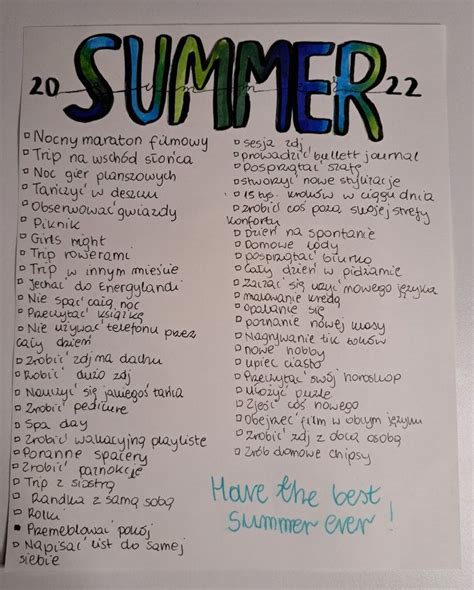 20 SUMMER 22
summer
Nocny maraton filmowy
Trip na wschód słońca
Noc gier planszowych
Tańczyć w deszczu
Obserwować gwiazdy
Piknik
Girls night
Trip rowerami
Trip w innym mieście
Jechać do Energylandi
Nie spać całą noc
Przeczytać książkę
Nie używać telefonu przez
cały dzień
Zrobić zdj na dachu
Robić dużo zdj
Nauczyć się jakiegoś tańca
Zrobić pedicure
Spa day
Zrobić wakacyjną playliste
Poranne spacery
Zrobić paznokcie
Trip z siostrą
Randka z samą sobą
Rolki
Przemeblować pokój
Napisać list do samej
siebie
sesja zdj
prowadzić bullett journal
Posprzątać szafę
stworzyć nowe stylizacje
15 tyś. kroków w ciągu dnia
zrobić coś poza swojej strefy
konfortu
Dzień na spontanie
Domowe lody
posprzątać biurko
Cały dzień w pidżamie
Zacząć się uczyć nowego języka
malowanie kredą
opalanie się
poznanie nowej
Nagrywanie tik toków
nowe hobby
upiec ciasto
Przeczytać swój horoskop
ułożyć puzle
Zjeść coś nowego
Obejrzeć film w obcym języku
Zrobić zdj z obcą osobą
Zrób domowe chipsy
Have the best
summer ever!